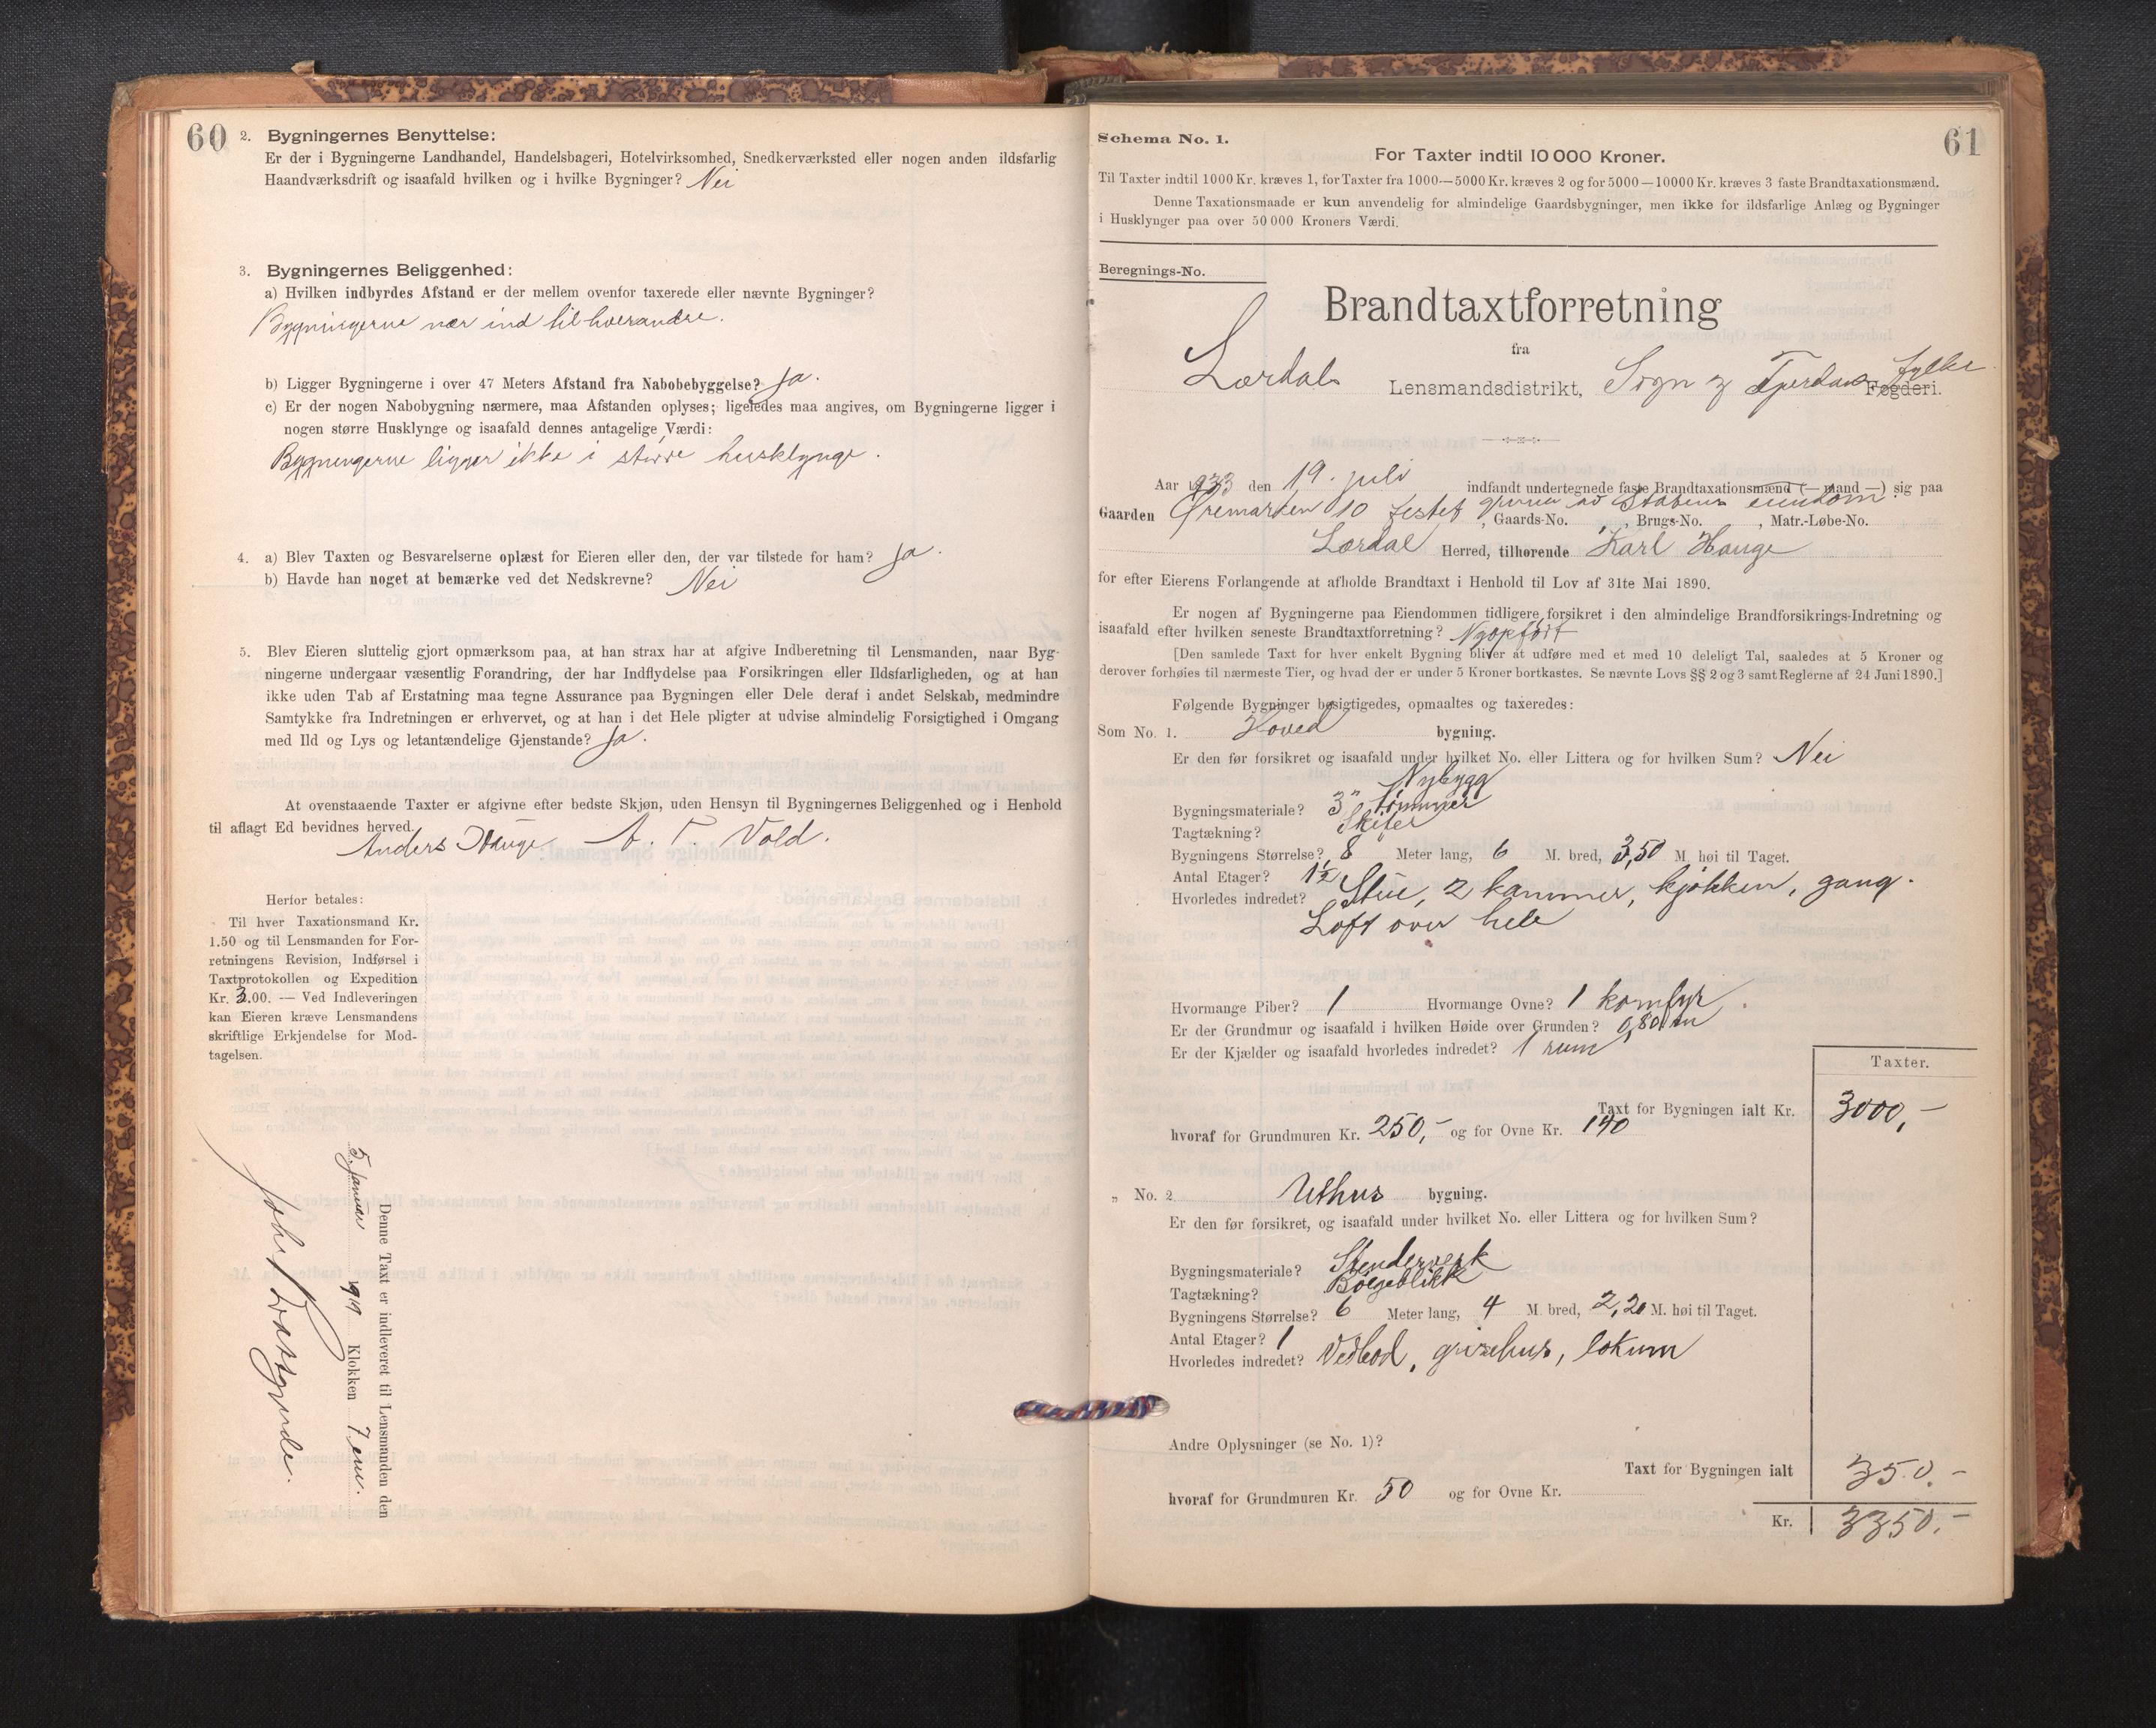 60
2. Bygningernes Benyttelse:
Er der i Bygningerne Landhandel, Handelsbageri, Hotelvirksomhed, Snedkerværksted eller nogen anden ildsfarlig
Haandværksdrift og isaafald hvilken og i hvilke Bygninger? Nei
3. Bygningernes Beliggenhed:
a) Hvilken indbyrdes Afstand er der mellem ovenfor taxerede eller nævnte Bygninger?
Bygningerne nær ind til hverandre.
b) Ligger Bygningerne i over 47 Meters Afstand fra Nabobebyggelse? Ja.
c) Er der nogen Nabobygning nærmere, maa Afstanden oplyses; ligeledes maa angives, om Bygningerne ligger i
nogen større Husklynge og isaafald dennes antagelige Værdi:
Bygningerne ligger ikke i større husklynge.
4. a) Blev Taxten og Besvarelserne oplæst for Eieren eller den, der var tilstede for ham? Ja.
b) Havde han noget at bemærke ved det Nedskrevne? Nei
5. Blev Eieren sluttelig gjort opmærksom paa, at han strax har at afgive Indberetning til Lensmanden, naar Byg-
ningerne undergaar væsentlig Forandring, der har Indflydelse paa Forsikringen eller Ildsfarligheden, og at han
ikke uden Tab af Erstatning maa tegne Assurance paa Bygningen eller Dele deraf i andet Selskab, medmindre
Samtykke fra Indretningen er erhvervet, og at han i det Hele pligter at udvise almindelig Forsigtighed i Omgang
med Ild og Lys og letantændelige Gjenstande? Ja.
At ovenstaaende Taxter er afgivne efter bedste Skjøn, uden Hensyn til Bygningernes Beliggenhed og i Henhold
til aflagt Ed bevidnes herved.
Anders Hauge A. T. Vold.
Herfor betales:
Til hver Taxationsmand Kr.
1.50 og til Lensmanden for For-
retningens Revision, Indførsel i
Taxtprotokollen og Expedition
Kr. 3.00. — Ved Indleveringen
kan Eieren kræve Lensmandens
skriftlige Erkjendelse for Mod-
tagelsen.
Denne Taxt er indleveret til Lensmanden den
5. Januar 19 Klokken 7 em.
Schema No. 1.
61
For Taxter indtil 10 000 Kroner.
Til Taxter indtil 1000 Kr. kræves 1, for Taxter fra 1000—5000 Kr. kræves 2 og for 5000—10000 Kr. kræves 3 faste Brandtaxationsmænd.
Denne Taxationsmaade er kun anvendelig for almindelige Gaardsbygninger, men ikke for ildsfarlige Anlæg og Bygninger
i Husklynger paa over 50 000 Kroners Værdi.
Beregnings-No.
Brandtaxtforretning
fra
Lærdals Lensmandsdistrikt, Sogn og Fjordane fylke Fogderi.
Aar 1933 den 19. juli indfandt undertegnede faste Brandtaxationsmænd (— mand —) sig paa
Gaarden Øremarken 10 festet grunn av Statens eiendom, Gaards-No. , Brugs-No. , Matr.-Løbe-No.
Lærdal Herred, tilhørende Karl Hauge
for efter Eierens Forlangende at afholde Brandtaxt i Henhold til Lov af 31te Mai 1890.
Er nogen af Bygningerne paa Eiendommen tidligere forsikret i den almindelige Brandforsikrings-Indretning og
isaafald efter hvilken seneste Brandtaxtforretning? Nyopført
[Den samlede Taxt for hver enkelt Bygning bliver at udføre med et med 10 deleligt Tal, saaledes at 5 Kroner og
derover forhøies til nærmeste Tier, og hvad der er under 5 Kroner bortkastes. Se nævnte Lovs §§ 2 og 3 samt Reglerne af 24 Juni 1890.]
Følgende Bygninger besigtigedes, opmaaltes og taxeredes:
Som No. 1. Hoved bygning.
Er den før forsikret og isaafald under hvilket No. eller Littera og for hvilken Sum? Nei
Nybygg
Bygningsmateriale? 3" tømmer
Tagtækning? Skifer
Bygningens Størrelse? 8 Meter lang, 6 M. bred, 3,50 M. høi til Taget.
Antal Etager? 1½
Hvorledes indredet? Stue, 2 kammer, kjøkken, gang.
Loft over hele
Hvormange Piber? 1 Hvormange Ovne? 1 komfyr.
Er der Grundmur og isaafald i hvilken Høide over Grunden? 0,80 m
Er der Kjælder og isaafald hvorledes indredet? 1 rum
Taxter.
Taxt for Bygningen ialt Kr. 3000,-
hvoraf for Grundmuren Kr. 250,- og for Ovne Kr. 140
„ No. 2 Uthus bygning.
Er den før forsikret, og isaafald under hvilket No. eller Littera og for hvilken Sum?
Bygningsmateriale? Stenderverk
Tagtækning? Bølgeblikk
Bygningens Størrelse? 6 Meter lang, 4 M. bred, 2,20 M. høi til Taget.
Antal Etager? 1
Hvorledes indredet? Vedbod, grisehus, lokum
Andre Oplysninger (se No. 1)?
Taxt for Bygningen ialt 350.-
hvoraf for Grundmuren Kr. 50 og for Ovne Kr.
Kr. 3350.-